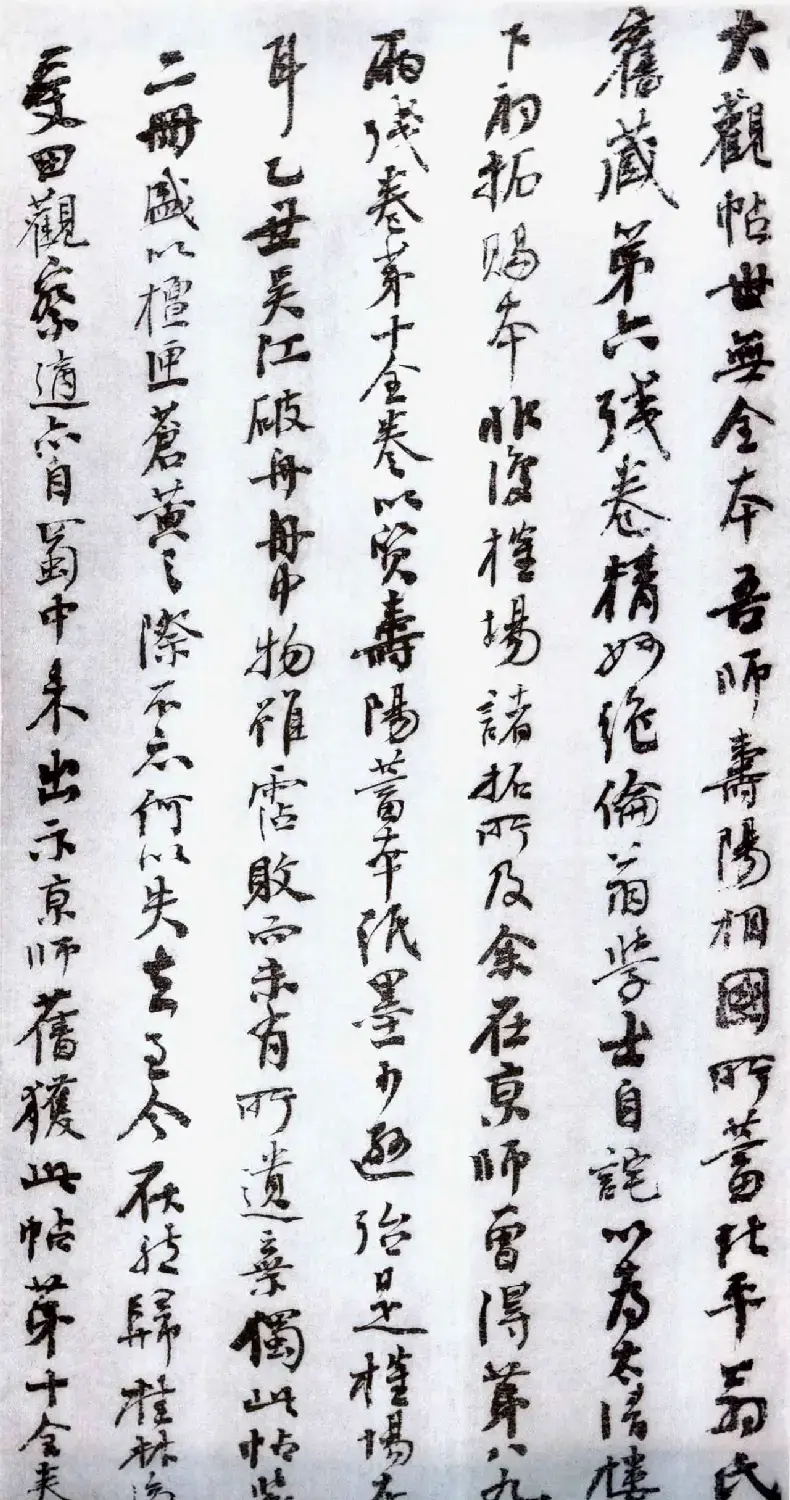 大觀帖世無全本吾師壽陽相國所蓄北平翁氏
舊藏第六殘卷精妙絕倫翁學士自詫以為太清樓
下初拓賜本非復榷場諸拓所及余在京師曾得第八九
兩殘卷第十全卷以質壽陽蓄本紙墨少遜殆是榷場本
耳乙丑吳江破舟舟中物雖霑敗而未有所遺棄獨此帖裝
二冊盛以檀匣蒼黃之際不忘何以失去至今歸桂林
受田觀察適亦自蜀中來出示京師舊獲此帖第十全